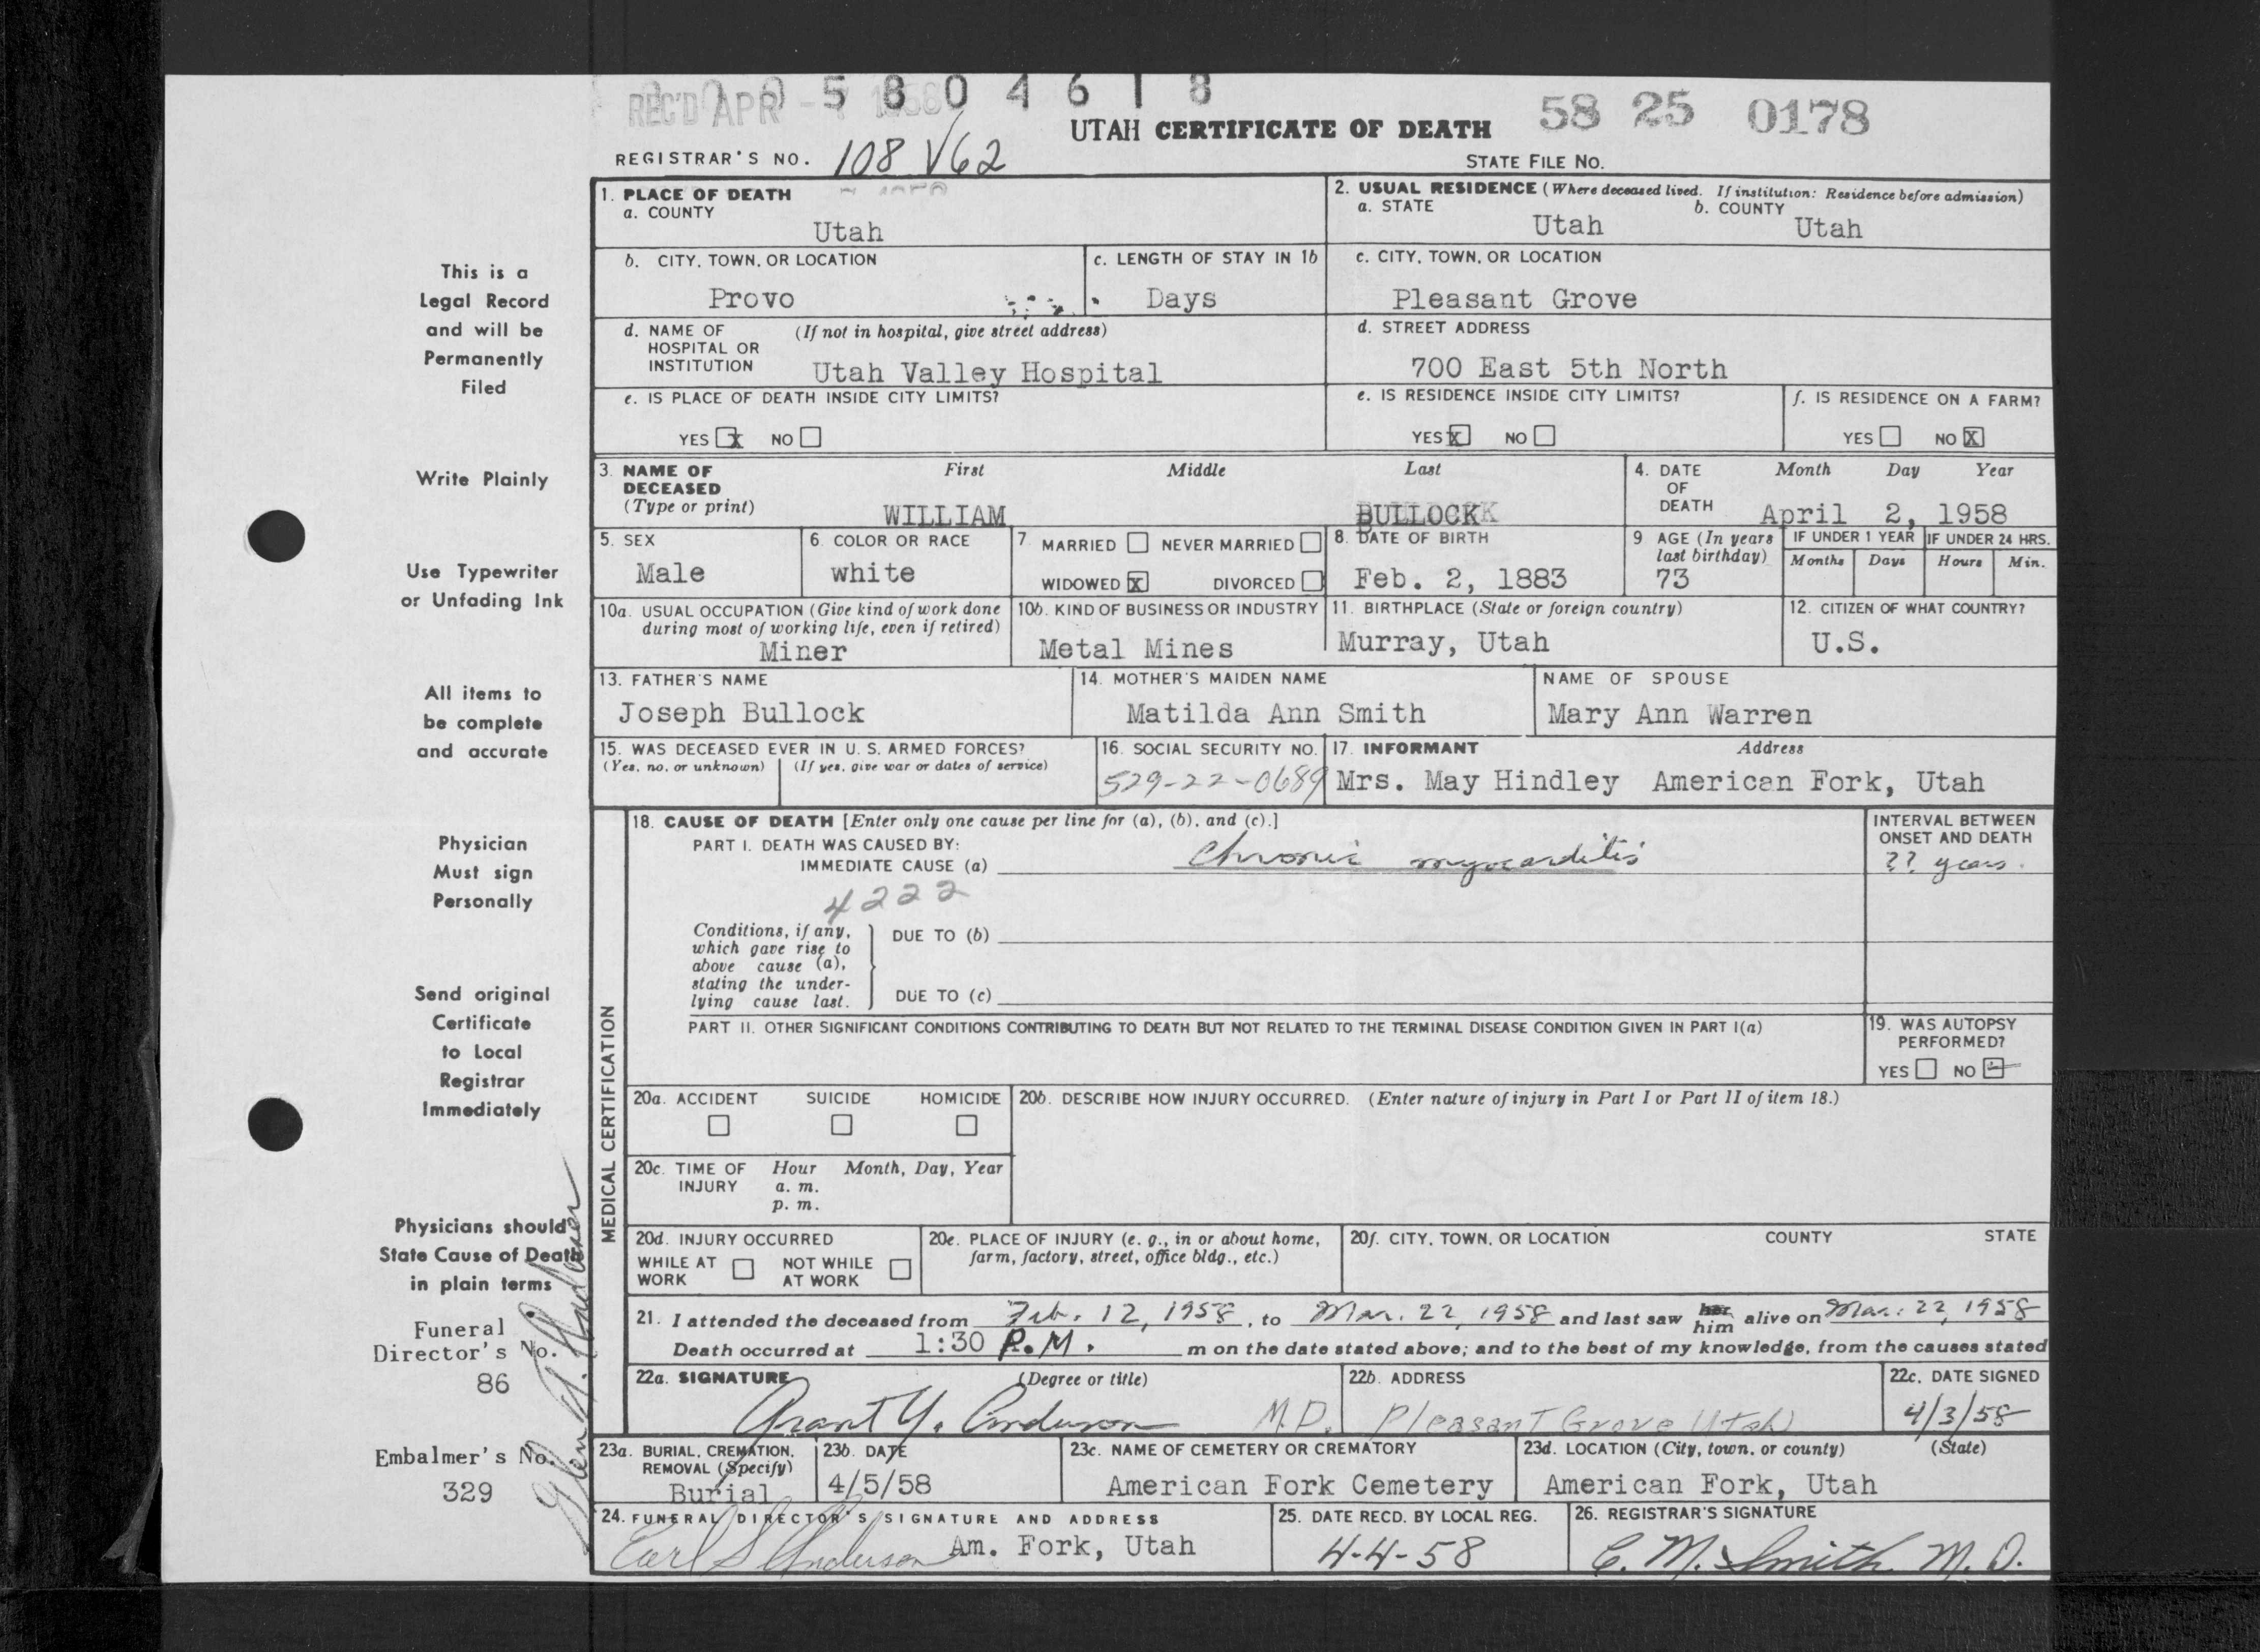 REC'D APR
5 8 0 4 6 1 8
UTAH CERTIFICATE OF DEATH 58 25 0178
REGISTRAR'S NO. 108 V62 STATE FILE NO.
1. PLACE OF DEATH
a. COUNTY
Utah
2. USUAL RESIDENCE (Where deceased lived. If institution: Residence before admission)
a. STATE b. COUNTY
Utah Utah
b. CITY, TOWN, OR LOCATION
Provo
c. LENGTH OF STAY IN 1b
Days
c. CITY, TOWN, OR LOCATION
Pleasant Grove
d. NAME OF (If not in hospital, give street address)
HOSPITAL OR
INSTITUTION Utah Valley Hospital
d. STREET ADDRESS
700 East 5th North
e. IS PLACE OF DEATH INSIDE CITY LIMITS?
YES X NO
e. IS RESIDENCE INSIDE CITY LIMITS?
YES X NO
f. IS RESIDENCE ON A FARM?
YES NO X
3. NAME OF First Middle Last
DECEASED
(Type or print) WILLIAM BULLOCK
4. DATE Month Day Year
OF
DEATH April 2, 1958
5. SEX
Male
6. COLOR OR RACE
white
7. MARRIED NEVER MARRIED
WIDOWED X DIVORCED
8. DATE OF BIRTH
Feb. 2, 1883
9 AGE (In years
last birthday)
73
IF UNDER 1 YEAR IF UNDER 24 HRS.
Months Days Hours Min.
10a. USUAL OCCUPATION (Give kind of work done
during most of working life, even if retired)
Miner
10b. KIND OF BUSINESS OR INDUSTRY
Metal Mines
11. BIRTHPLACE (State or foreign country)
Murray, Utah
12. CITIZEN OF WHAT COUNTRY?
U.S.
13. FATHER'S NAME
Joseph Bullock
14. MOTHER'S MAIDEN NAME
Matilda Ann Smith
NAME OF SPOUSE
Mary Ann Warren
15. WAS DECEASED EVER IN U. S. ARMED FORCES?
(Yes, no, or unknown) (If yes, give war or dates of service)
16. SOCIAL SECURITY NO.
529-22-0689
17. INFORMANT Address
Mrs. May Hindley American Fork, Utah
MEDICAL CERTIFICATION
18. CAUSE OF DEATH [Enter only one cause per line for (a), (b), and (c).]
PART I. DEATH WAS CAUSED BY:
IMMEDIATE CAUSE (a) Chronic myocarditis
INTERVAL BETWEEN
ONSET AND DEATH
?? years.
4222
Conditions, if any,
which gave rise to
above cause (a),
stating the under-
lying cause last.
DUE TO (b)
DUE TO (c)
PART II. OTHER SIGNIFICANT CONDITIONS CONTRIBUTING TO DEATH BUT NOT RELATED TO THE TERMINAL DISEASE CONDITION GIVEN IN PART I(a)
19. WAS AUTOPSY
PERFORMED?
YES NO
20a. ACCIDENT SUICIDE HOMICIDE
20b. DESCRIBE HOW INJURY OCCURRED. (Enter nature of injury in Part I or Part II of item 18.)
20c. TIME OF Hour Month, Day, Year
INJURY a. m.
p. m.
20d. INJURY OCCURRED
WHILE AT NOT WHILE
WORK AT WORK
20e. PLACE OF INJURY (e. g., in or about home,
farm, factory, street, office bldg., etc.)
20f. CITY, TOWN, OR LOCATION COUNTY STATE
21. I attended the deceased from Feb. 12, 1958, to Mar. 22, 1958 and last saw her him alive on Mar. 22, 1958
Death occurred at 1:30 P.M. m on the date stated above; and to the best of my knowledge, from the causes stated
22a. SIGNATURE (Degree or title)
Grant Y. Anderson M.D.
22b. ADDRESS
Pleasant Grove Utah
22c. DATE SIGNED
4/3/58
23a. BURIAL, CREMATION,
REMOVAL (Specify)
Burial
23b. DATE
4/5/58
23c. NAME OF CEMETERY OR CREMATORY
American Fork Cemetery
23d. LOCATION (City, town, or county) (State)
American Fork, Utah
24. FUNERAL DIRECTOR'S SIGNATURE AND ADDRESS
Earl S Anderson Am. Fork, Utah
25. DATE RECD. BY LOCAL REG.
4-4-58
26. REGISTRAR'S SIGNATURE
C. M. Smith M. D.
This is a
Legal Record
and will be
Permanently
Filed
Write Plainly
Use Typewriter
or Unfading Ink
All items to
be complete
and accurate
Physician
Must sign
Personally
Send original
Certificate
to Local
Registrar
Immediately
Physicians should
State Cause of Death
in plain terms
Funeral
Director's No.
86
Embalmer's No.
329